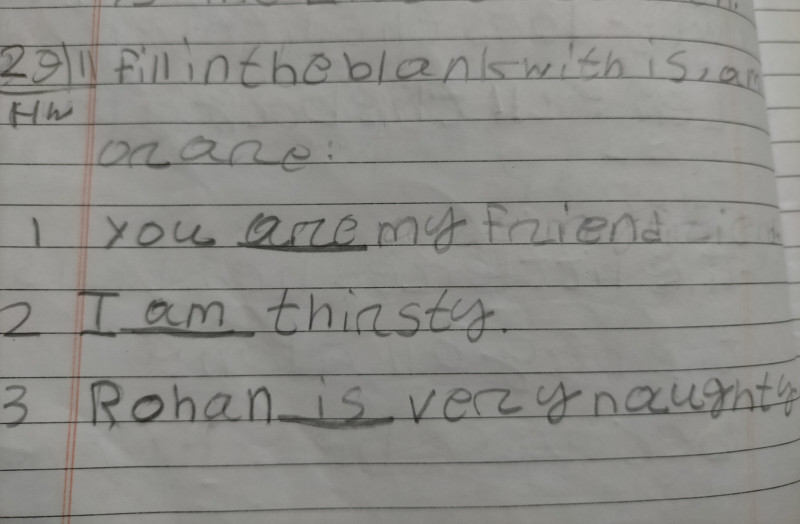 29/11 fill in the blanks with is, am
HW
or are:
1 you are my friend
2 I am thirsty.
3 Rohan is very naughty